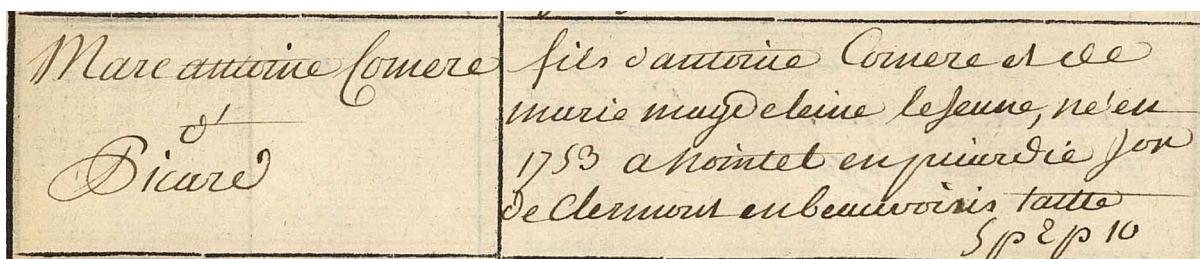 Marc antoine Comere
d'
Picard
fils d'antoine Comere et de
marie magdeleine leJeune, né en
1753 a Nointel en picardie Jon
de Clermont en beauvoisis taille
5 p 2 p 10